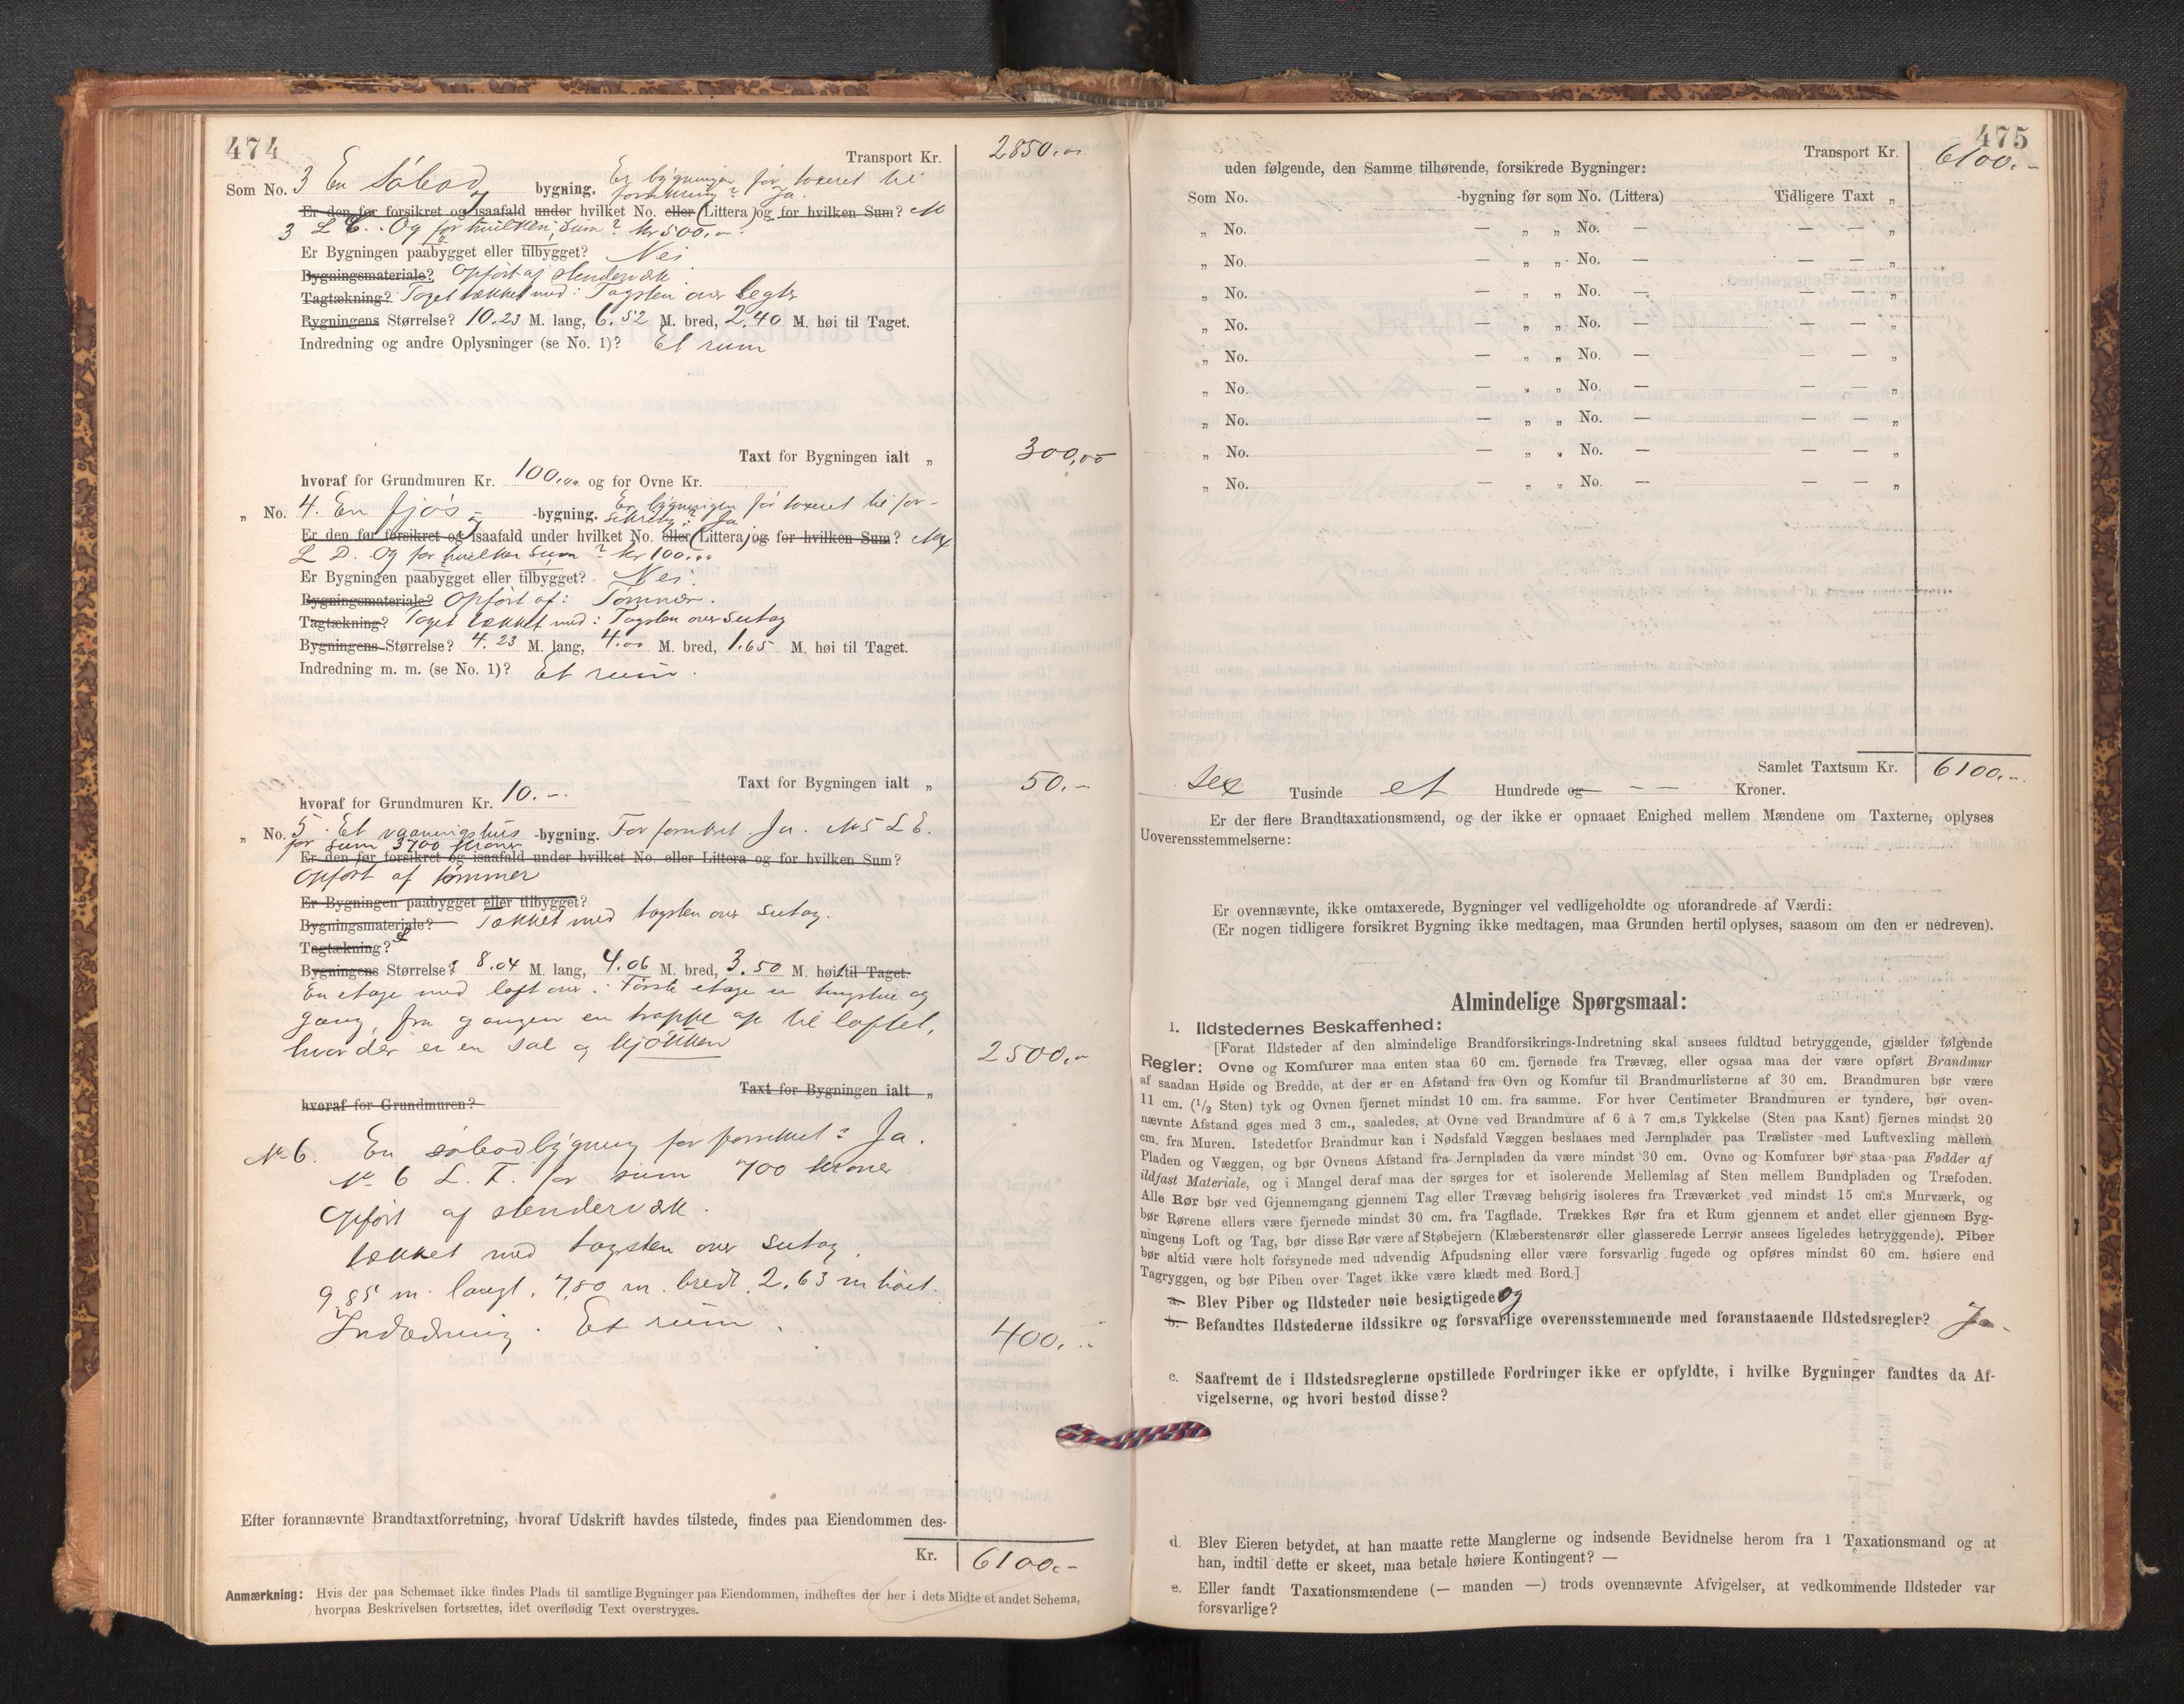 474
Transport Kr. 2850.00
Som No. 3 En Söbod bygning. Er bygningen før taxeret til
forsikring? Ja.
Er den før forsikret og isaafald under hvilket No. eller (Littera) og for hvilken Sum? No
3 L C. Og for hvilken Sum? Kr 500.00.
Er Bygningen paabygget eller tilbygget? Nei
Bygningsmateriale? Opført af stenderværk
Tagtækning? Taget tækket med: Tagsten over Legter
Bygningens Størrelse? 10.23 M. lang, 6.52 M. bred, 2.40 M. høi til Taget.
Indredning og andre Oplysninger (se No. 1)? Et rum
Taxt for Bygningen ialt „ 300,00
hvoraf for Grundmuren Kr. 100.00 og for Ovne Kr.
„ No. 4. En fjös -bygning. Er bygningen før taxeret til for-
sikring? Ja
Er den før forsikret og isaafald under hvilket No. eller (Littera) og for hvilken Sum? No 4
L D. Og for hvilken Sum? Kr 100.00
Er Bygningen paabygget eller tilbygget? Nei.
Bygningsmateriale? Opført af: Tømmer.
Tagtækning? Taget tækket med: Tagsten over Sutag
Bygningens Størrelse? 4.23 M. lang, 4.00 M. bred, 1.65 M. høi til Taget.
Indredning m. m. (se No. 1)? Et rum.
Taxt for Bygningen ialt „ 50.-
hvoraf for Grundmuren Kr. 10.-
„ No. 5. Et vaaningshus -bygning. Før forsikret Ja. No 5 L E.
for Sum 3700 Kroner
Er den før forsikret og isaafald under hvilket No. eller Littera og for hvilken Sum?
Opført af tømmer
Er Bygningen paabygget eller tilbygget?
Bygningsmateriale? Tækket med tagsten over Sutag.
Tagtækning?
Bygningens Størrelse? 8.04 M. lang, 4.06 M. bred, 3.50 M. høi til Taget.
En etage med loft over. Förste etage er
gang, fra gangen en trappe op til loftet,
hvor der er en Sal og kjökken 2500.-
Taxt for Bygningen ialt „
hvoraf for Grundmuren?
No 6. En söbodbygning før forsikret? Ja.
No 6 L. F. for sum 700 Kroner
Opført af stenderværk.
tækket med tagsten over Sutag.
9,85 m. langt, 7,80 m. bredt, 2.63 m höit.
Indredning. Et rum. 400.-
Efter forannævnte Brandtaxtforretning, hvoraf Udskrift havdes tilstede, findes paa Eiendommen des-
Kr. 6100.-
Anmærkning: Hvis der paa Schemaet ikke findes Plads til samtlige Bygninger paa Eiendommen, indheftes der her i dets Midte et andet Schema,
hvorpaa Beskrivelsen fortsættes, idet overflødig Text overstryges.
475
Transport Kr. 6100.-
uden følgende, den Samme tilhørende, forsikrede Bygninger:
Som No. -bygning før som No. (Littera) Tidligere Taxt „
„ No. — „ „ No. — — — „
„ No. — „ „ No. — — — „
„ No. — „ „ No. — — — „
„ No. — „ „ No. — — — „
„ No. — „ „ No. — — — „
„ No. — „ „ No. — — — „
„ No. — „ „ No. — — — „
„ No. — „ „ No. — — — „
„ No. — „ „ No. — — — „
Samlet Taxtsum Kr. 6100.-
sex Tusinde et Hundrede og — — Kroner.
Er der flere Brandtaxationsmænd, og der ikke er opnaaet Enighed mellem Mændene om Taxterne, oplyses
Uoverensstemmelserne:
Er ovennævnte, ikke omtaxerede, Bygninger vel vedligeholdte og uforandrede af Værdi:
(Er nogen tidligere forsikret Bygning ikke medtagen, maa Grunden hertil oplyses, saasom om den er nedreven).
Almindelige Spørgsmaal:
1. Ildstedernes Beskaffenhed:
[Forat Ildsteder af den almindelige Brandforsikrings-Indretning skal ansees fuldtud betryggende, gjælder følgende
Regler: Ovne og Komfurer maa enten staa 60 cm. fjernede fra Trævæg, eller ogsaa maa der være opført Brandmur
af saadan Høide og Bredde, at der er en Afstand fra Ovn og Komfur til Brandmurlisterne af 30 cm. Brandmuren bør være
11 cm. (1/2 Sten) tyk og Ovnen fjernet mindst 10 cm. fra samme. For hver Centimeter Brandmuren er tyndere, bør oven-
nævnte Afstand øges med 3 cm., saaledes, at Ovne ved Brandmure af 6 à 7 cm.s Tykkelse (Sten paa Kant) fjernes mindst 20
cm. fra Muren. Istedetfor Brandmur kan i Nødsfald Væggen beslaaes med Jernplader paa Trælister med Luftvexling mellem
Pladen og Væggen, og bør Ovnens Afstand fra Jernpladen da være mindst 30 cm. Ovne og Komfurer bør staa paa Fødder af
ildfast Materiale, og i Mangel deraf maa der sørges for et isolerende Mellemlag af Sten mellem Bundpladen og Træfoden.
Alle Rør bør ved Gjennemgang gjennem Tag eller Trævæg behørig isoleres fra Træværket ved mindst 15 cm.s Murværk, og
bør Rørene ellers være fjernede mindst 30 cm. fra Tagflade. Trækkes Rør fra et Rum gjennem et andet eller gjennem Byg-
ningens Loft og Tag, bør disse Rør være af Støbejern (Klæberstensrør eller glasserede Lerrør ansees ligeledes betryggende). Piber
bør altid være helt forsynede med udvendig Afpudsning eller være forsvarlig fugede og opføres mindst 60 cm. høiere end
Tagryggen, og bør Piben over Taget ikke være klædt med Bord.]
a. Blev Piber og Ildsteder nøie besigtigede og
b. Befandtes Ildstederne ildssikre og forsvarlige overensstemmende med foranstaaende Ildstedsregler? Ja.
c. Saafremt de i Ildstedsreglerne opstillede Fordringer ikke er opfyldte, i hvilke Bygninger fandtes da Af-
vigelserne, og hvori bestod disse?
d. Blev Eieren betydet, at han maatte rette Manglerne og indsende Bevidnelse herom fra 1 Taxationsmand og at
han, indtil dette er skeet, maa betale høiere Kontingent? —
e. Eller fandt Taxationsmændene (— manden —) trods ovennævnte Afvigelser, at vedkommende Ildsteder var
forsvarlige?